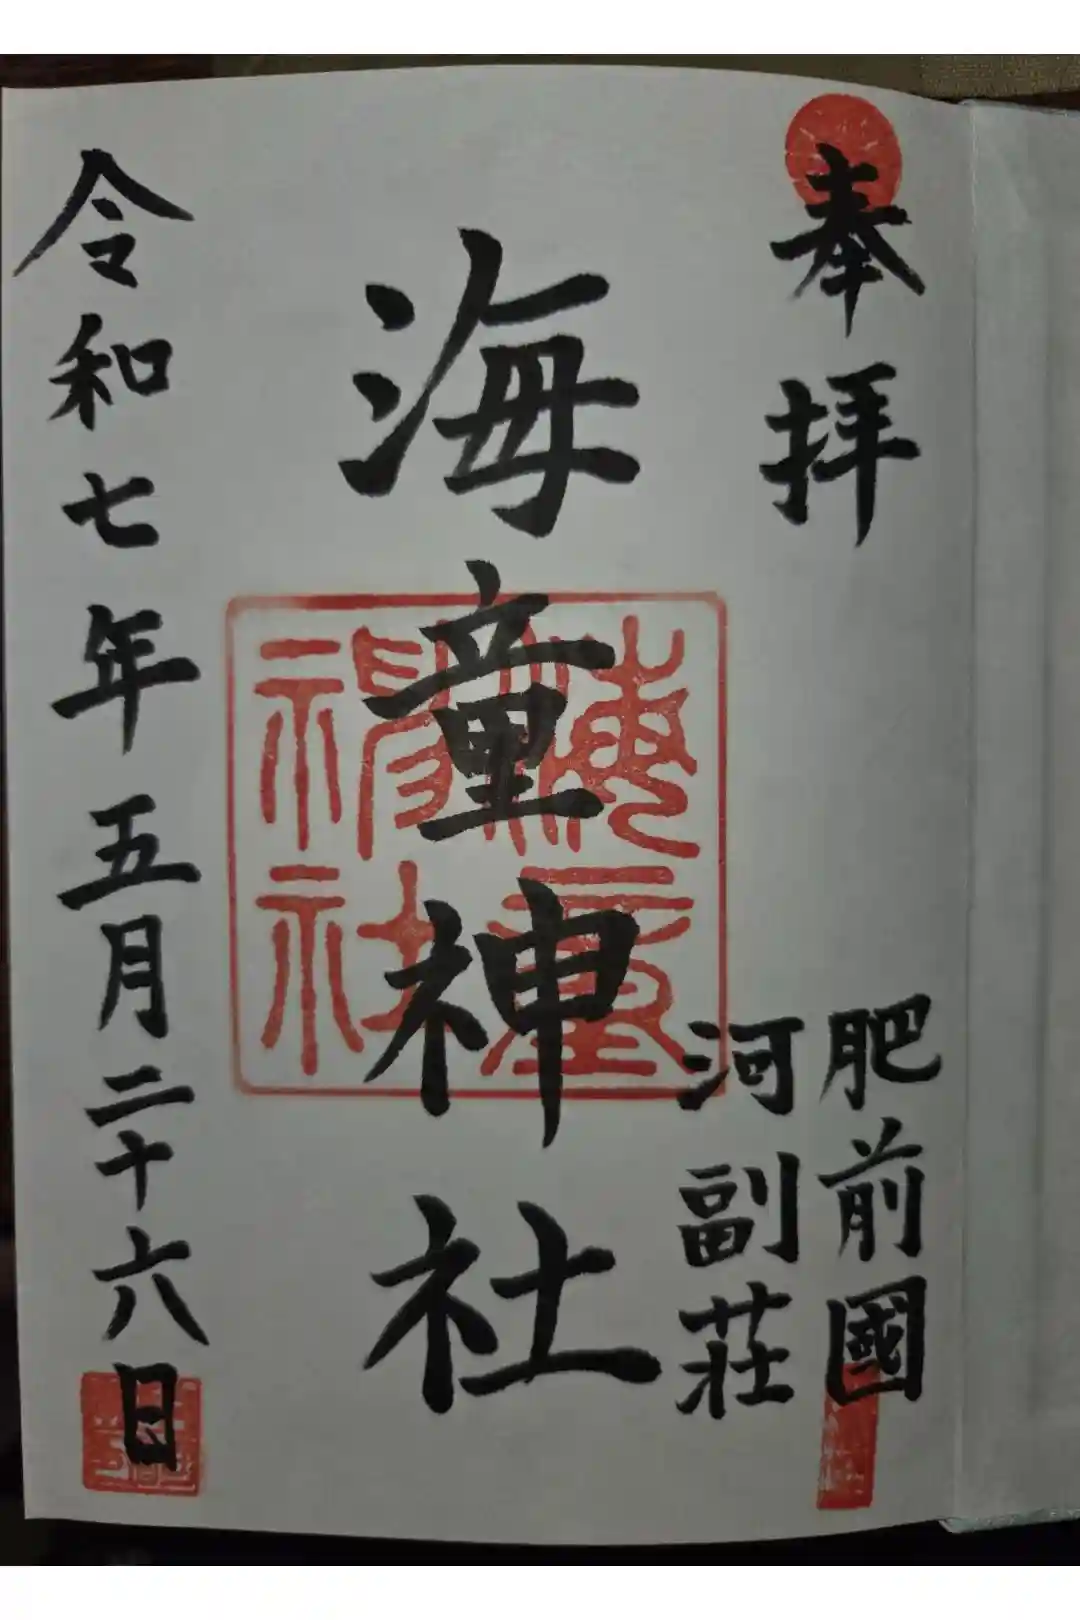 奉拝
肥前國
河副荘
海童神社
海童神社
令和七年五月二十六日